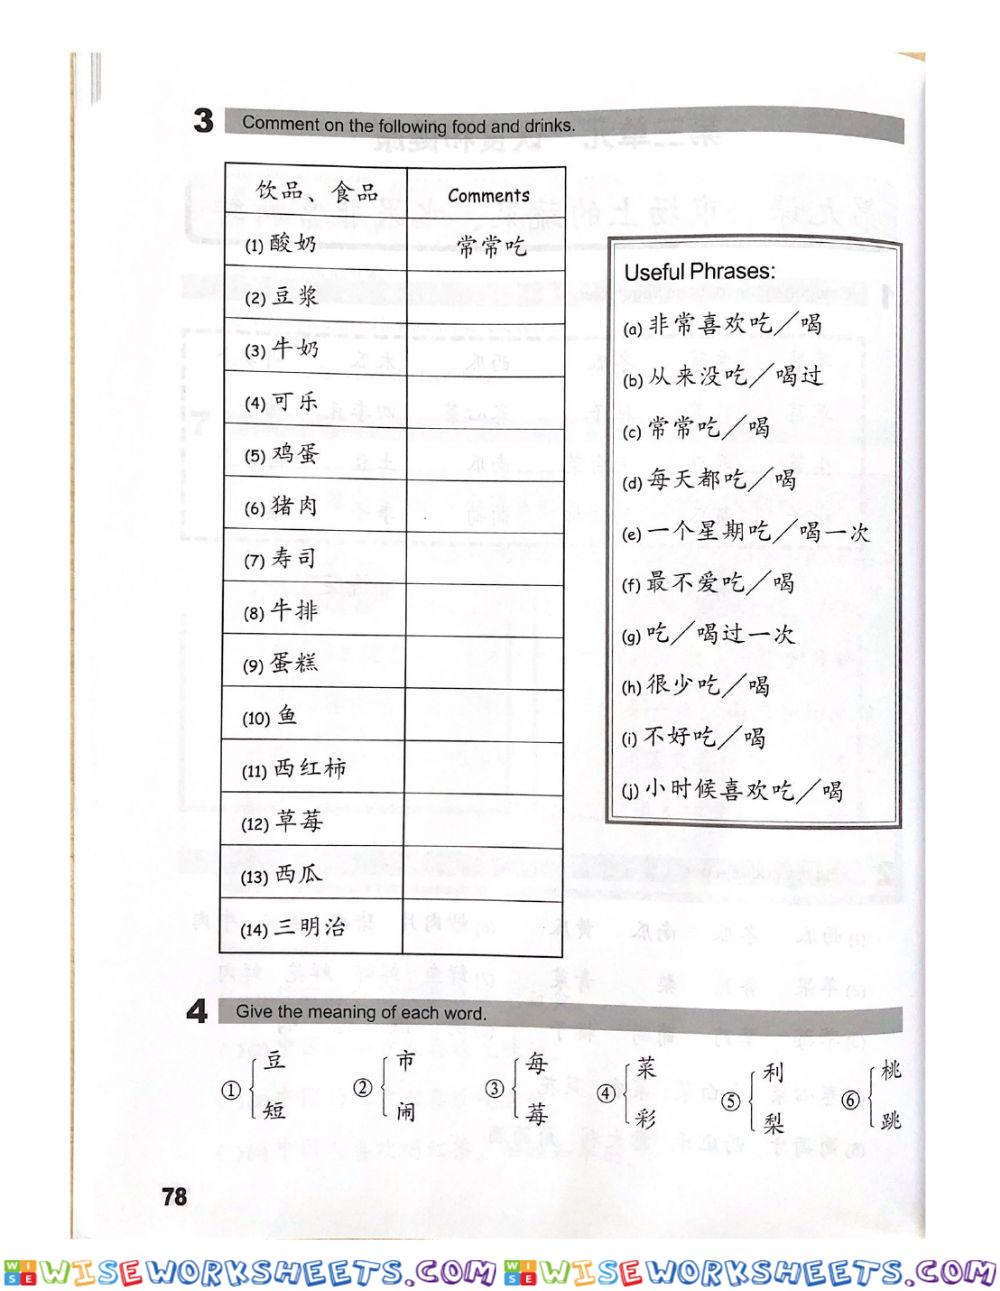 3 Comment on the following food and drinks.
饮品、食品 Comments
(1) 酸奶 常常吃
(2) 豆浆
(3) 牛奶
(4) 可乐
(5) 鸡蛋
(6) 猪肉
(7) 寿司
(8) 牛排
(9) 蛋糕
(10) 鱼
(11) 西红柿
(12) 草莓
(13) 西瓜
(14) 三明治
Useful Phrases:
(a) 非常喜欢吃／喝
(b) 从来没吃／喝过
(c) 常常吃／喝
(d) 每天都吃／喝
(e) 一个星期吃／喝一次
(f) 最不爱吃／喝
(g) 吃／喝过一次
(h) 很少吃／喝
(i) 不好吃／喝
(j) 小时候喜欢吃／喝
4 Give the meaning of each word.
① 豆 短
② 市 闹
③ 每 莓
④ 菜 彩
⑤ 利 梨
⑥ 桃 跳
78
WISEWORKSHEETS.COM WISEWORKSHEETS.COM